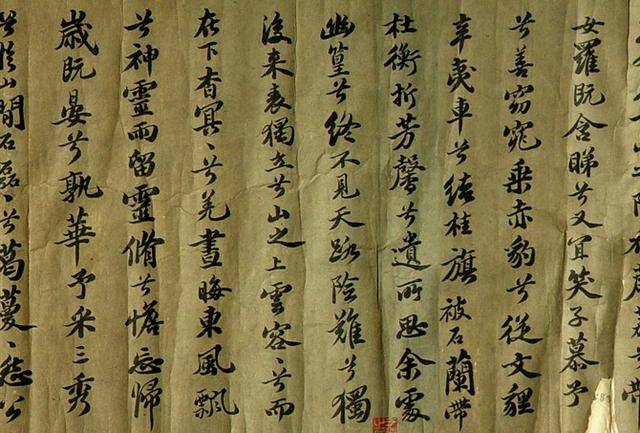 女羅既含睇兮又宜笑子慕予
兮善窈窕乘赤豹兮從文貍
辛夷車兮結桂旗被石蘭帶
杜衡折芳馨兮遺所思余處
幽篁兮終不見天路陰難兮獨
後來表獨立兮山之上雲容〻兮而
在下杳冥〻兮羌晝晦東風飄
兮神靈雨留靈脩兮憺忘歸
歲既晏兮孰華予采三秀
兮於山間石磊〻兮葛蔓〻怨公